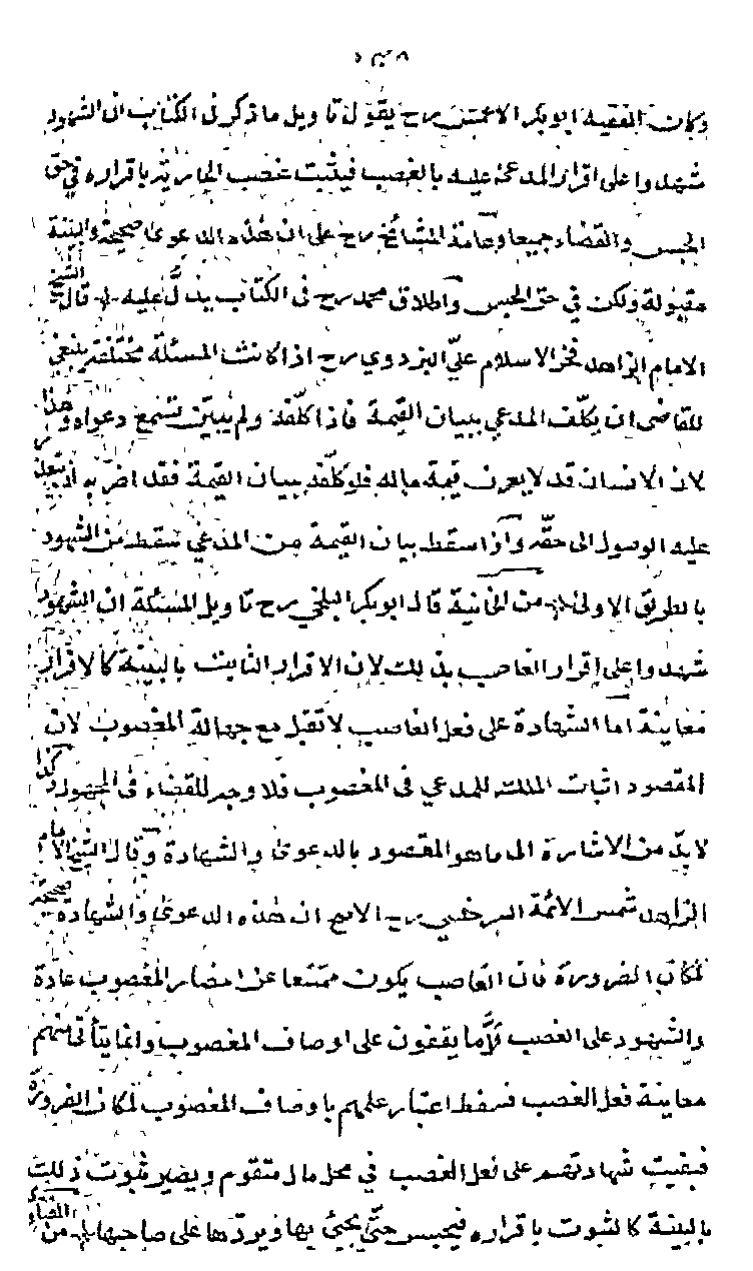 وكان الفقيه ابو بكر الاعمش رح يقول تاويل ما ذكر فى الكتاب ان الشهود
شهدوا على اقرار المدعى عليه بالغصب فيثبت غصب الجارية باقراره في حق
الحبس والقضاء جميعا وعامة المشائخ رح على ان هذه الدعوى صحيحة والبينة
مقبولة ولكن في حق الحبس واطلاق محمد رح فى الكتاب يدل عليه قال الشيخ
الامام الزاهد فخر الاسلام علي البزدوي رح اذا كانت المسئلة مختلفة ينبغي
للقاضى ان يكلف المدعي ببيان القيمة فاذا كلفه ولم يبين تسمع دعواه وهذا
لان الانسان قد لا يعرف قيمة ماله فلو كلفه ببيان القيمة فقد اضر به اذ يتعذر
عليه الوصول الى حقه واذا سقط بيان القيمة من المدعي سقط من الشهود
بالطريق الاولى من الخانية قال ابو بكر البلخي رح تاويل المسئلة ان الشهود
شهدوا على اقرار الغاصب بذلك لان الاقرار الثابت بالبينة كالاقرار
معاينة اما الشهادة على فعل الغاصب لا تقبل مع جهالة المغصوب لان
المقصود اثبات الملك للمدعي فى المغصوب فلا وجه للقضاء فى المجهول وكذا
لا بد من الاشارة الى ما هو المقصود بالدعوى والشهادة وقال الشيخ الامام
الزاهد شمس الائمة السرخسي رح الاصح ان هذه الدعوى والشهادة صحيحة
لمكان الضرورة فان الغاصب يكون ممتنعا عن احضار المغصوب عادة
والشهود على الغصب قلما يقفون على اوصاف المغصوب وانما يتأتى منهم
معاينة فعل الغصب فسقط اعتبار علمهم باوصاف المغصوب لمكان الضرورة
فبقيت شهادتهم على فعل الغصب في محل مال متقوم ويصير ثبوت ذلك
بالبينة كالثبوت باقراره فيحبس حتى يجئ بها ويردها على صاحبها من